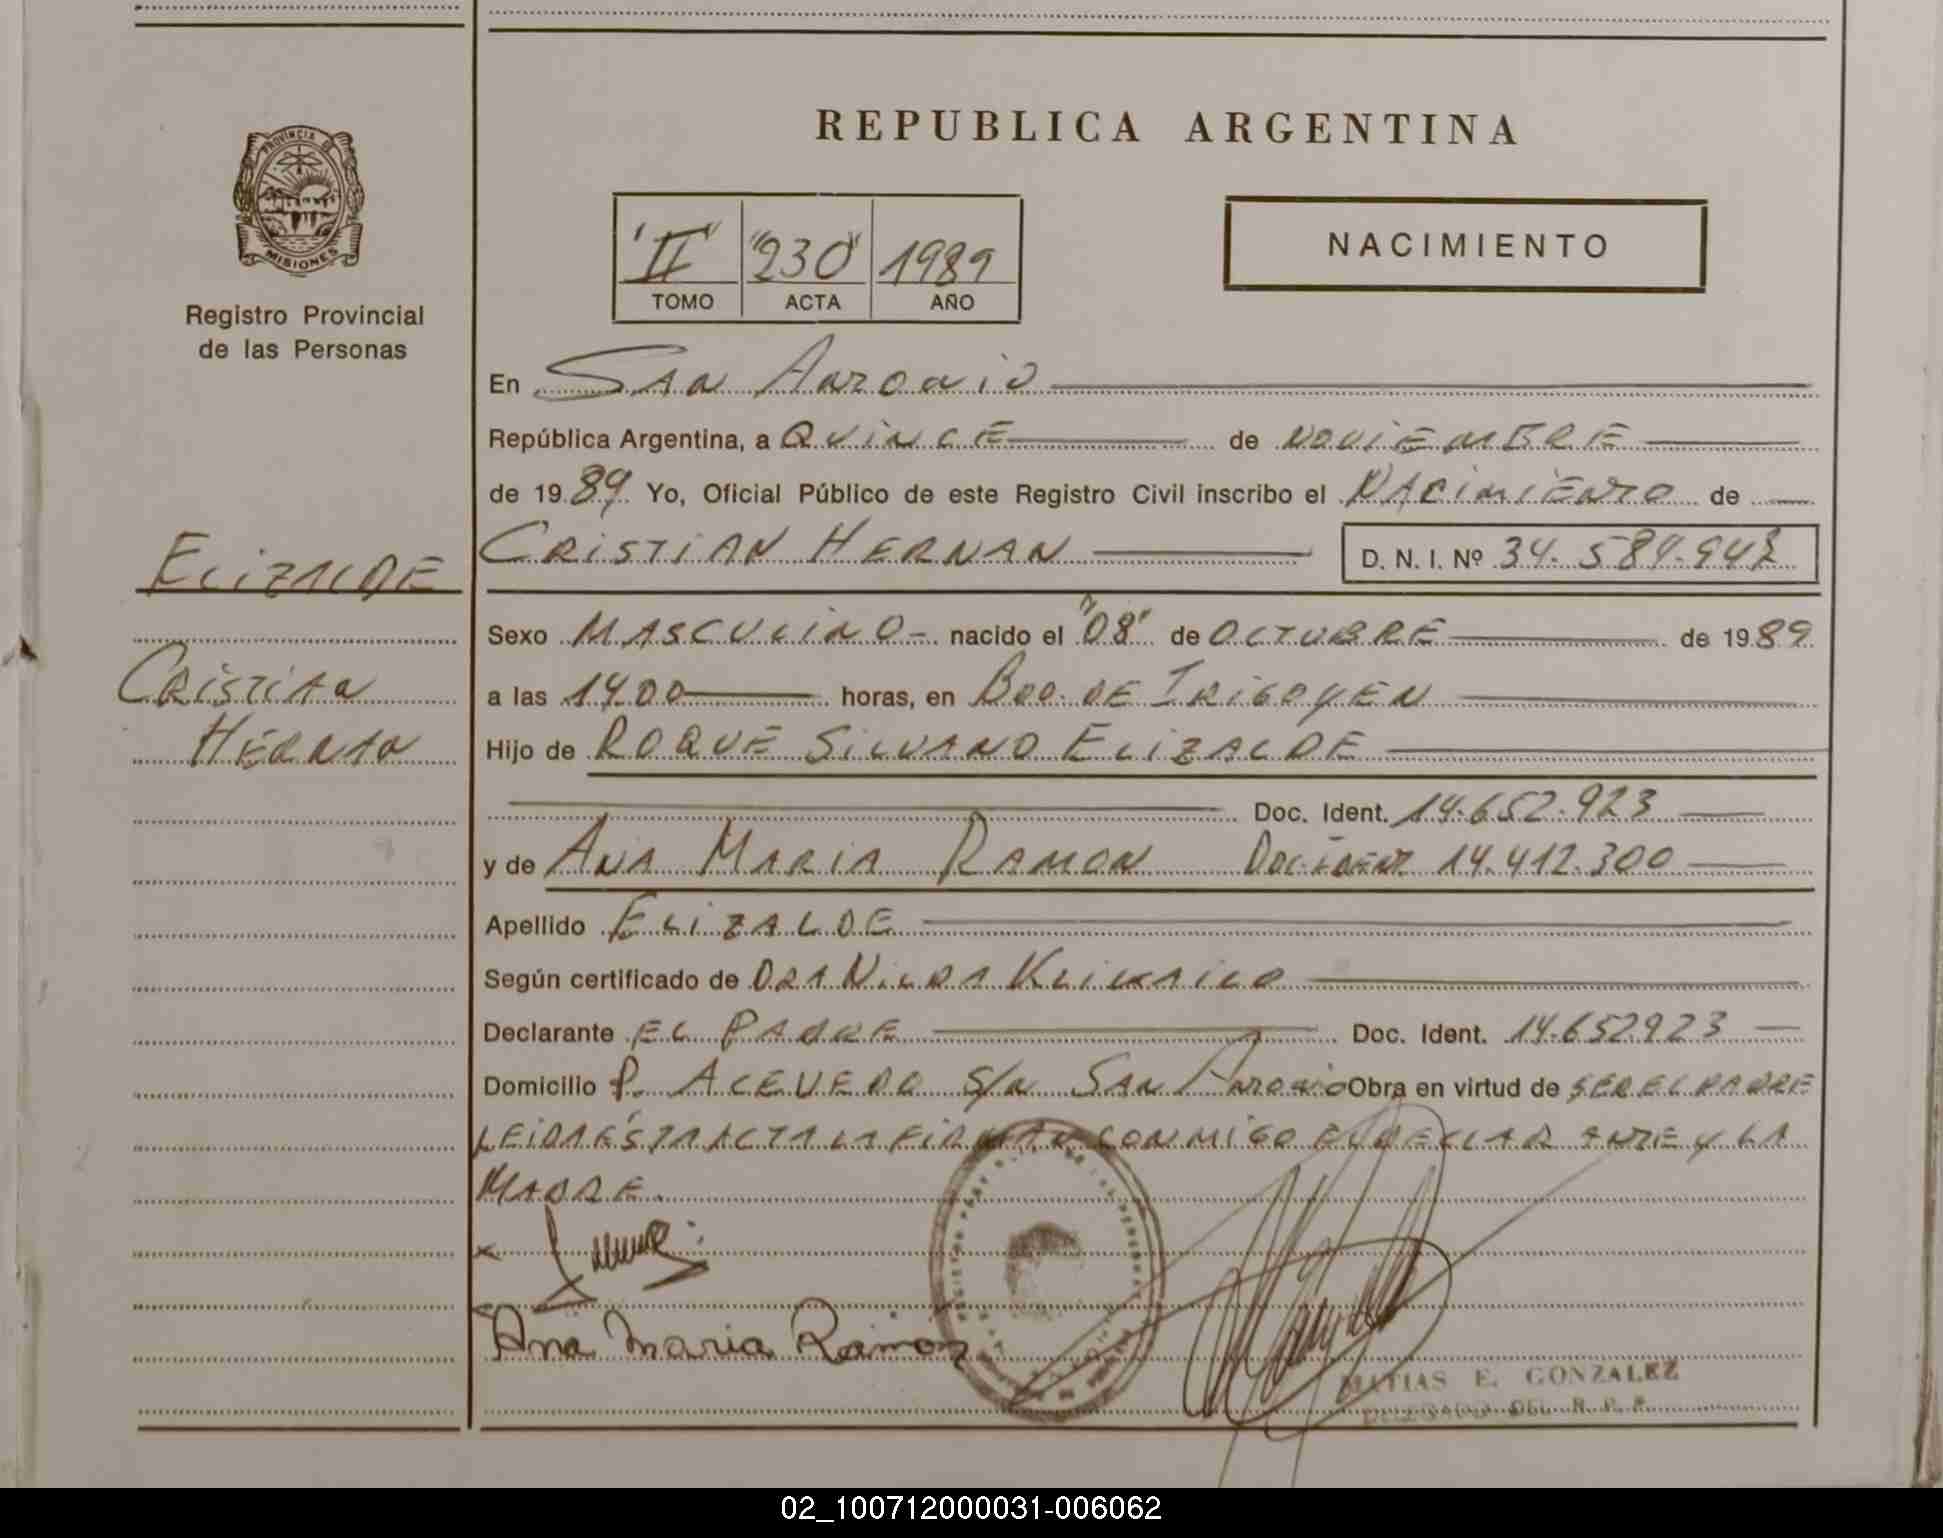 REPUBLICA ARGENTINA
PROVINCIA DE
MISIONES
Registro Provincial
de las Personas
"II" "230" 1989
TOMO ACTA AÑO
NACIMIENTO
En San Antonio
República Argentina, a QUINCE de NOVIEMBRE
de 1989 Yo, Oficial Público de este Registro Civil inscribo el NACIMIENTO de
ELIZALDE
CRISTIAN HERNAN D. N. I. Nº
Sexo MASCULINO- nacido el "08" de OCTUBRE de 1989
CRISTIAN
a las 14,00 horas, en BDO. DE IRIGOYEN
HERNAN
Hijo de ROQUE SILVANO ELIZALDE
Doc. Ident. 14.652.923
y de ANA MARIA RAMON DOC. IDENT. 14.412.300
Apellido ELIZALDE
Según certificado de DRA NILDA
Declarante EL PADRE Doc. Ident. 14.652923
Domicilio P. ACEVEDO S/N SAN Antonio Obra en virtud de SER EL PADRE
LEIDA ÉSTA ACTA LA FIRMAN CONMIGO EL DECLARANTE Y LA
MADRE.
x
Ana Maria Ramon
MATIAS E. GONZALEZ
DELEGADO DEL R. P. P.
02_100712000031-006062